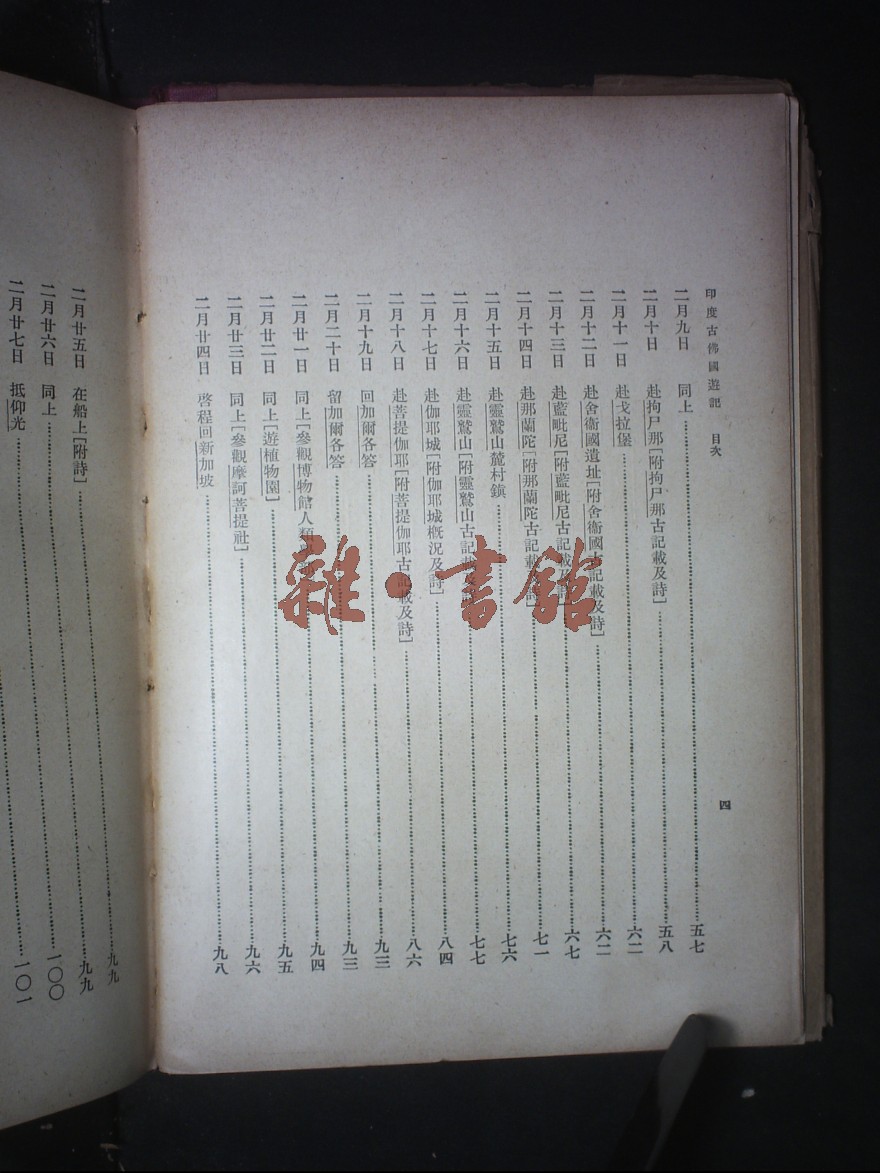 印度古佛國遊記 目次
四
二月九日 同上 五七
二月十日 赴拘尸那[附拘尸那古記載及詩] 五八
二月十一日 赴戈拉堡 六二
二月十二日 赴舍衞國遺址[附舍衞國古記載及詩] 六二
二月十三日 赴藍毗尼[附藍毗尼古記載及詩] 六七
二月十四日 赴那蘭陀[附那蘭陀古記載及詩] 七一
二月十五日 赴靈鷲山麓村鎮 七六
二月十六日 赴靈鷲山[附靈鷲山古記載及 七七
二月十七日 赴伽耶城[附伽耶城概況及詩] 八四
二月十八日 赴菩提伽耶[附菩提伽耶古記載及詩] 八六
二月十九日 回加爾各答 九三
二月二十日 留加爾各答 九三
二月廿一日 同上[參觀博物館人類 九四
二月廿二日 同上[遊植物園] 九五
二月廿三日 同上[參觀摩訶菩提社] 九六
二月廿四日 啓程回新加坡 九八
二月廿五日 在船上[附詩] 九九
二月廿六日 同上 一〇〇
二月廿七日 抵仰光 一〇一
九九
雜·書館